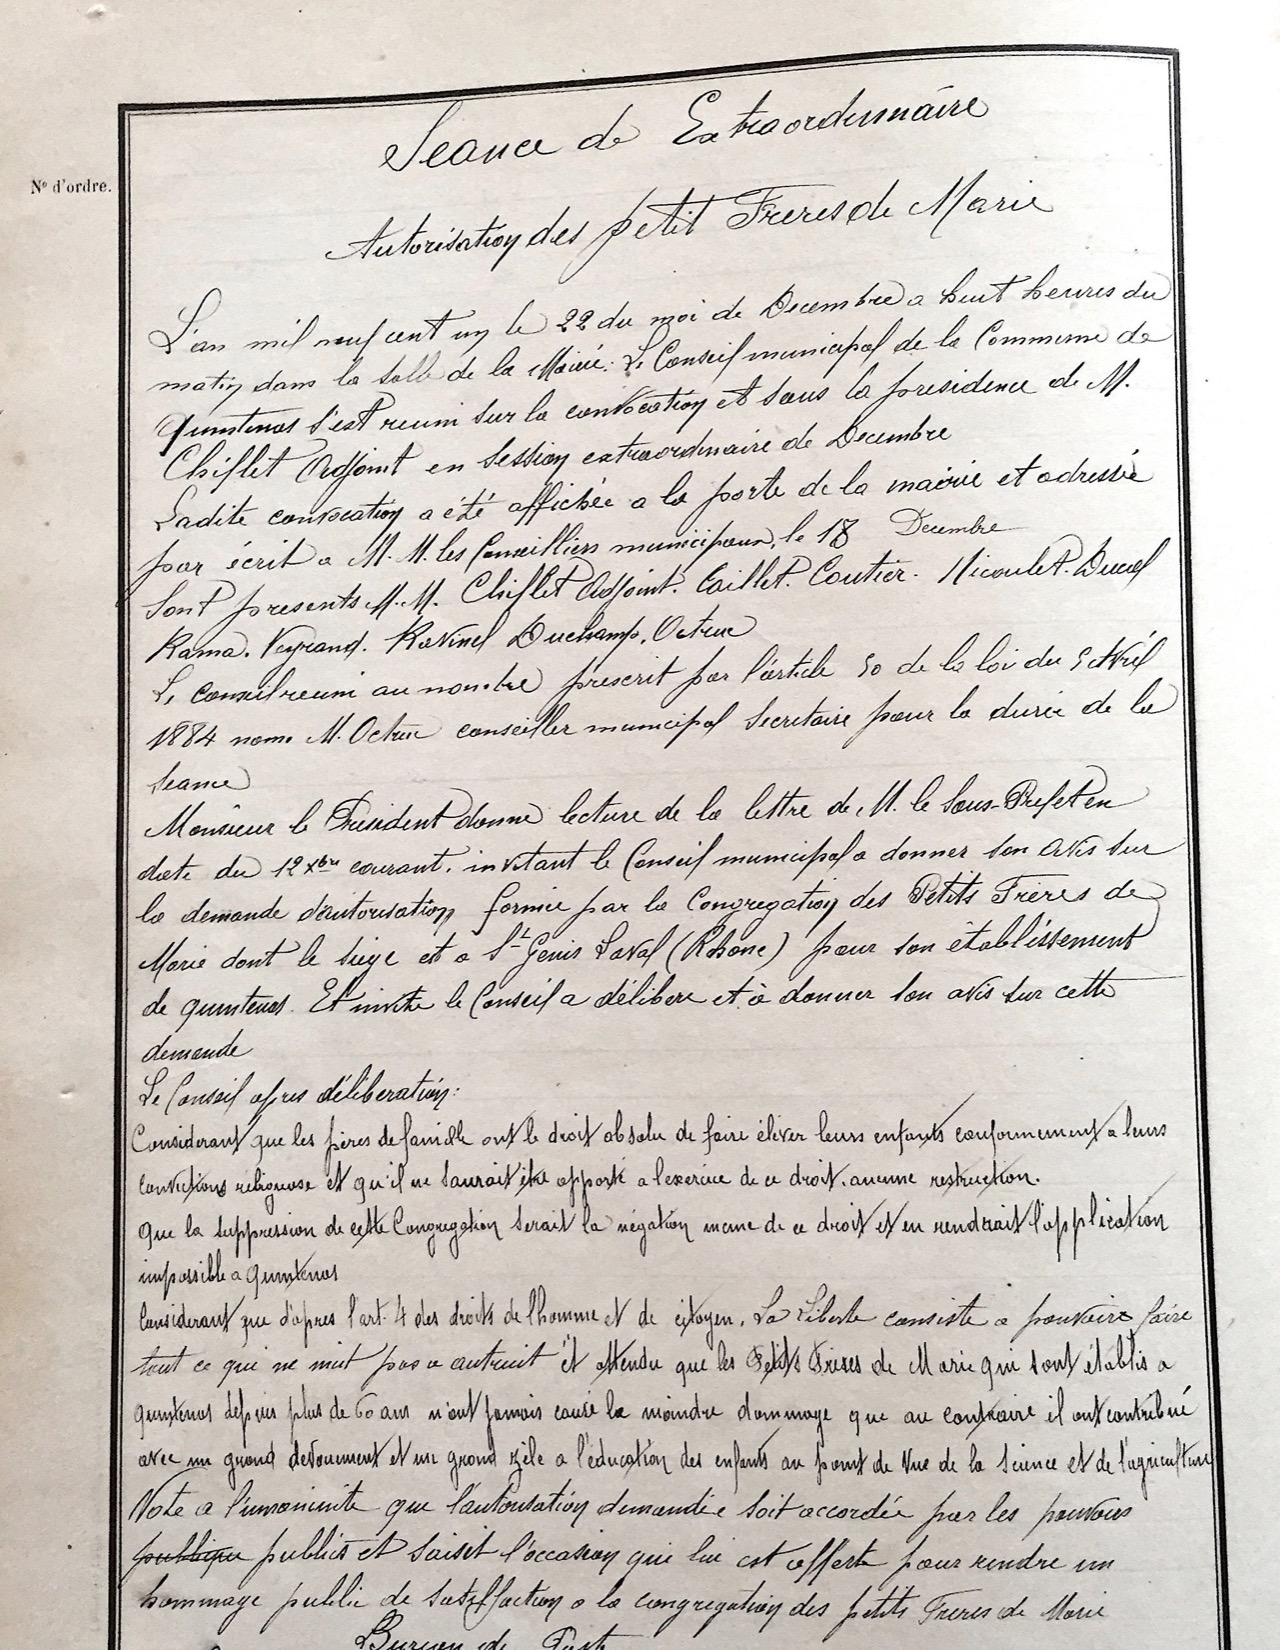 Séance de Extraordinnaire
N° d'ordre.
Autorisation des petit Freres de Marie
L'an mil neuf cent un le 22 du moi de Decembre a huit heures du
matin dans la salle de la Mairie. Le Conseil municipal de la Commune de
quintenas s'est reuni sur la convocation et sous la presidence de M.
Chiflet Adjoint en session extraordinaire de Decembre
Ladite convocation a été affichée a la porte de la mairie et adressée
par écrit a M. M. les Conseilliers municipaux, le 18 Decembre
Sont presents M. M. Chiflet Adjoint. Caillet. Coutier. Nicoulet. Ducol
Rama. Veyrand. Ravinel Duchamp. Octruc
Le conseil reuni au nombre prescrit par l'article 50 de la loi du 5 Avril
1884 nome M. Octruc conseiller municipal Secretaire pour la durée de la
seance
Monsieur le Président donne lecture de la lettre de M. le Sous-Prefet en
date du 12 xbre courant. invitant le Conseil municipal a donner son avis sur
la demande d'autorisation formée par la Congregation des Petits Frères de
Marie dont le siège et a St Genis Laval (Rhone) pour son établissement
de quintenas. Et invite le Conseil a délibere et à donner son avis sur cette
demande
Le Conseil apres déliberation:
Considerant que les pères de famille ont le droit absolu de faire éléver leurs enfants conformement a leurs
convictions religieuse et qu'il ne saurait être apporté a l'exercice de ce droit. aucune restriction.
Que la suppression de cette Congregation serait la négation meme de ce droit et en rendrait l'application
impossible a quintenas
Considerant que d'apres l'art. 4 des droits de l'homme et de citoyen. La Liberte consiste a pouvoir faire
tout ce qui ne nuit pas a autruit et attendu que les Petits Frères de Marie qui sont établis a
quintenas depuis plus de 60 ans n'ont jamais causé le moindre dommage que au contraire il ont contribué
avec un grand devouement et un grand zèle a l'éducation des enfants au point de vue de la science et de l'agriculture
Vote a l'unanimite que l'autorisation demandée soit accordée par les pouvoirs
publique publics et saisit l'occasion qui lui est offerte pour rendre un
hommage public de satisfaction a la congregation des petits Freres de Marie
Bureau de Poste